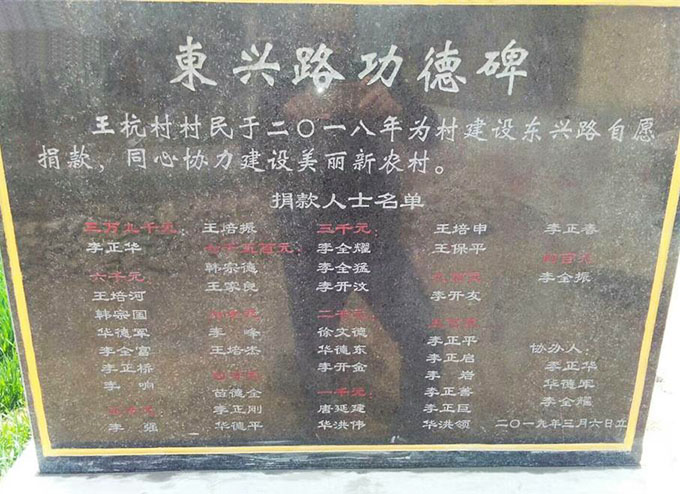 東兴路功德碑
王杭村村民于二〇一八年为村建设东兴路自愿
捐款，同心协力建设美丽新农村。
捐款人士名单
三万九千元：
李正华
六千元
王培河
韩宗国
华德军
李全富
李正桥
李 响
李 强
王培振
韩宗德
王家良
李 峰
王培丕
苗德全
李正刚
华德平
三千元：
李全耀
李全猛
李开汶
二千元：
徐文德
华德东
李开金
一千元：
唐延建
华洪伟
王培申
王保平
李开友
李正平
李正启
李 岩
李正善
李正巨
华洪领
李正春
李全振
协办人：
李正华
华德军
李全耀
二〇一九年三月六日立